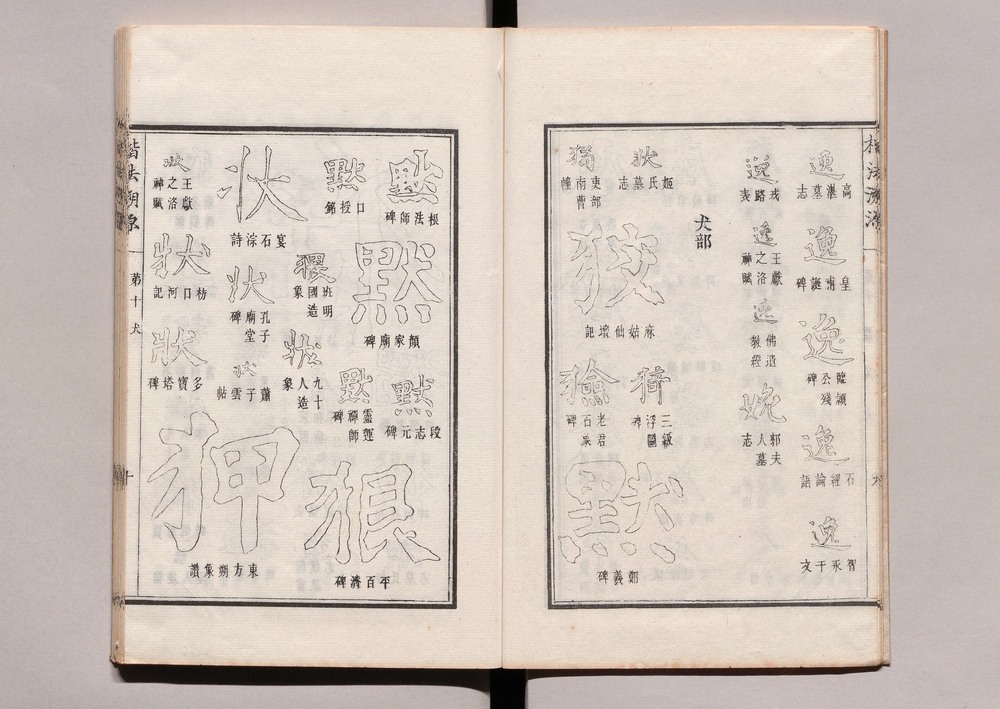 逸
高湛墓志
逸
皇甫誕碑
逸
臨潁殘碑
逸
石經論語
逸
智永千文
逸
戎路表
逸
王獻之洛神賦
逸
佛遺教經
郭夫人墓志
犬部
狄
姬氏墓志
吏部曹南幢
狡
麻姑仙壇記
猗
三級浮圖碑
獫
老君石象碑
默
鄭義碑
默
根法師碑
默
顏家廟碑
默
段志元碑
狠
平百濟碑
默
口授銘
猥
班國明造象
狀
九十人造象
默
靈運禪師碑
狀
宴石淙詩
狀
孔子廟堂碑
狀
蕭子雲帖
狎
東方朔象讚
狀
王獻之洛神賦
狀
枋口河記
狀
多寶塔碑
楷法溯源
第十
犬
十